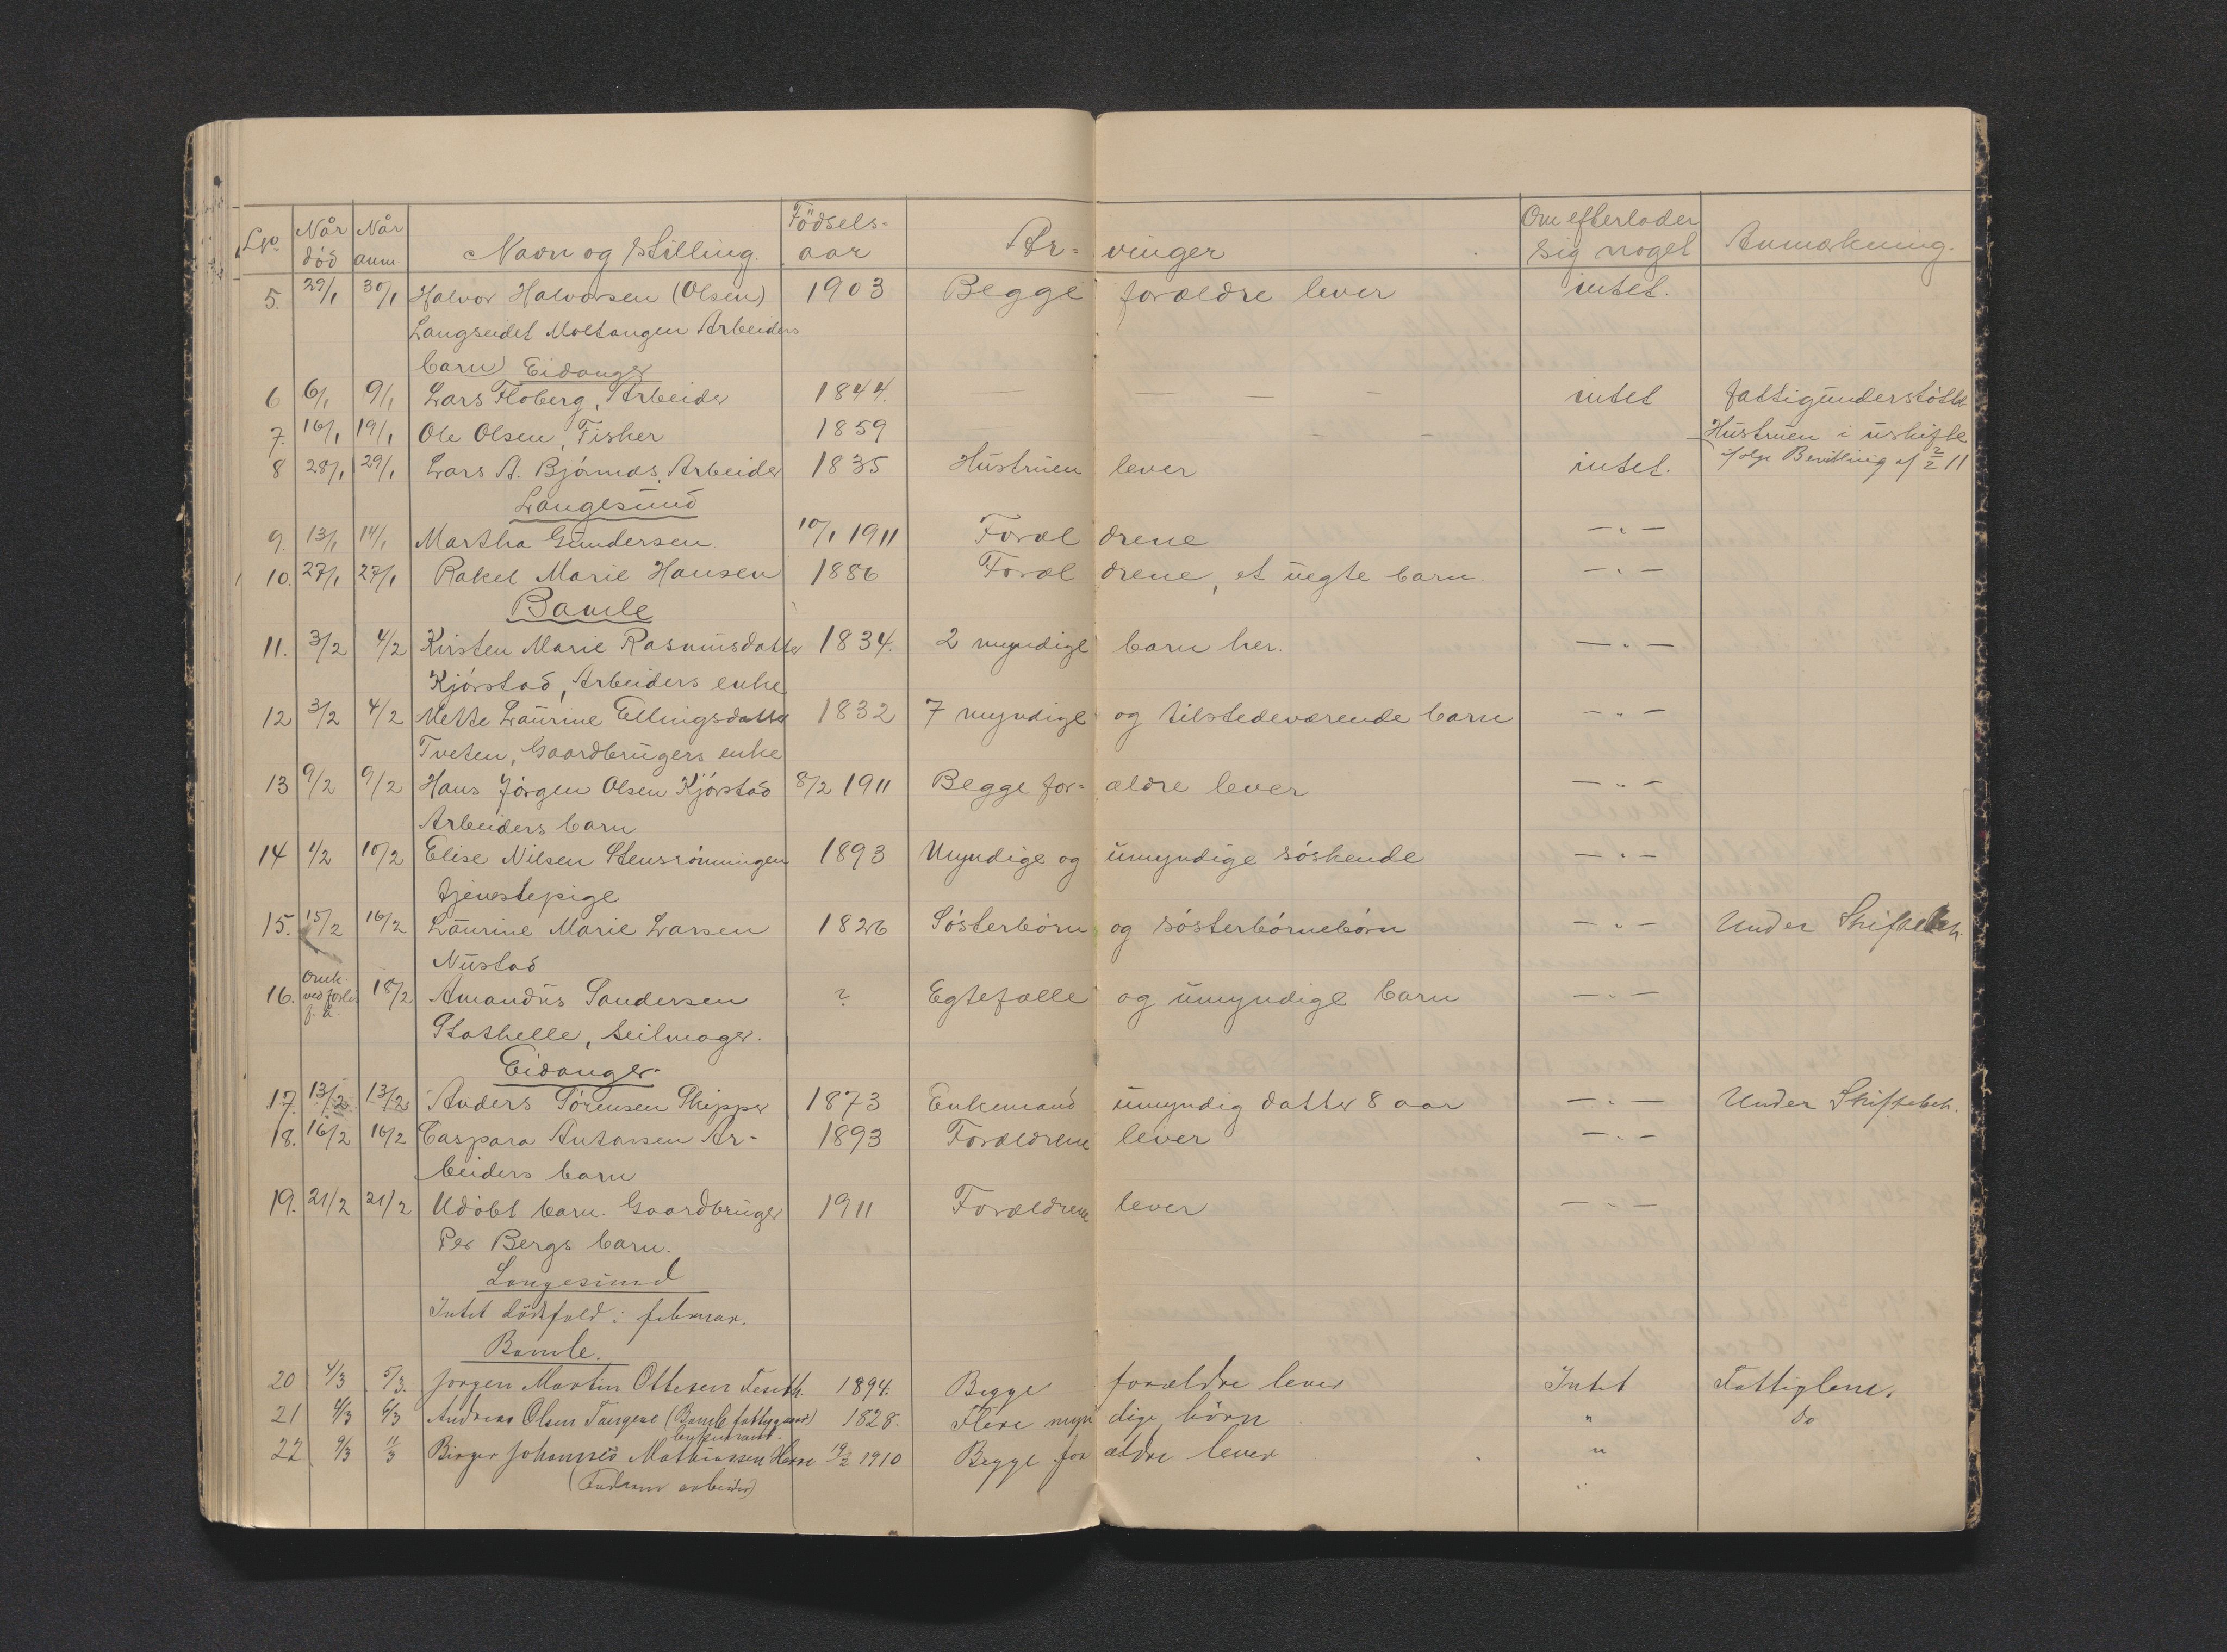 Lno Når død Når anm. Navn og stilling. Födsels-aar Ar-vinger Om efterlader sig noget Anmærkning.
5. 29/1 30/1 Halvor Halvorsen (Olsen) 1903 Begge forældre lever intet.
Langseidet Moltangen Arbeiders
barn) Eidanger
6 6/1 9/1 Lars Floberg, Arbeider 1844. — — — — intet fattigunderstøttet
7. 16/1 19/1 Ole Olsen, Fisker 1859 - - Hustruen i uskifte
8 28/1 29/1 Lars A. Bjørnæs, Arbeider 1835 Hustruen lever intet. ifølge Bevilling af 2/2 11
Langesund
9. 13/1 14/1 Martha Gundersen 10/1 1911 Foræl drene — " —
10. 27/1 27/1 Rakel Marie Hansen 1886 Foræl drene, et uegte barn. — " —
Bamle
11. 3/2 4/2 Kirsten Marie Rasmusdatter 1834. 2 myndige barn her. — " —
Kjørstad, Arbeiders enke
12 3/2 4/2 Mette Laurine Ellingsdatter 1832 7 myndige og tilstedeværende barn — " —
Tveten, Gaardbrugers enke
13 9/2 9/2 Hans Jörgen Olsen Kjørstad 8/2 1911 Begge for- ældre lever — " —
Arbeiders barn
14 1/2 10/2 Elise Nilsen Stensrönningen 1893 Myndige og umyndige søskende — " —
tjenestepige
15. 15/2 16/2 Laurine Marie Larsen 1826 Søsterbørn og søsterbørnebørn — " — Under Skiftebeh.
Nustad
16. Omk. ved forlis f. a. 18/2 Amandus Sandersen ? Egtefælle og umyndige barn — " —
Stathelle, seilmager.
Eidanger.
17. 13/2 13/2 Anders Sørensen Skipper 1873 Enkemand umyndig datter 8 aar — " — Under Skiftebeh.
18. 16/2 16/2 Caspara Antonsen Ar- 1893 Forældrene lever — " —
beiders barn
19. 21/2 21/2 Udøbt barn. Gaardbruger 1911 Forældrene lever — " —
Per Bergs barn.
Langesund
Intet dödsfald i februar.
Bamle.
20 4/3 5/3. Jørgen Martin Ottesen 1894. Begge forældre lever Intet Fattiglem.
21 4/3 6/3 Andreas Olsen Tangene (Bamle fattiggaard) 1828. Flere myn dige börn " do
enkemand.
22 9/3 11/3 Birger Johannes Mathiassen Herre 19/2 1910 Begge for ældre lever "
arbeider) "